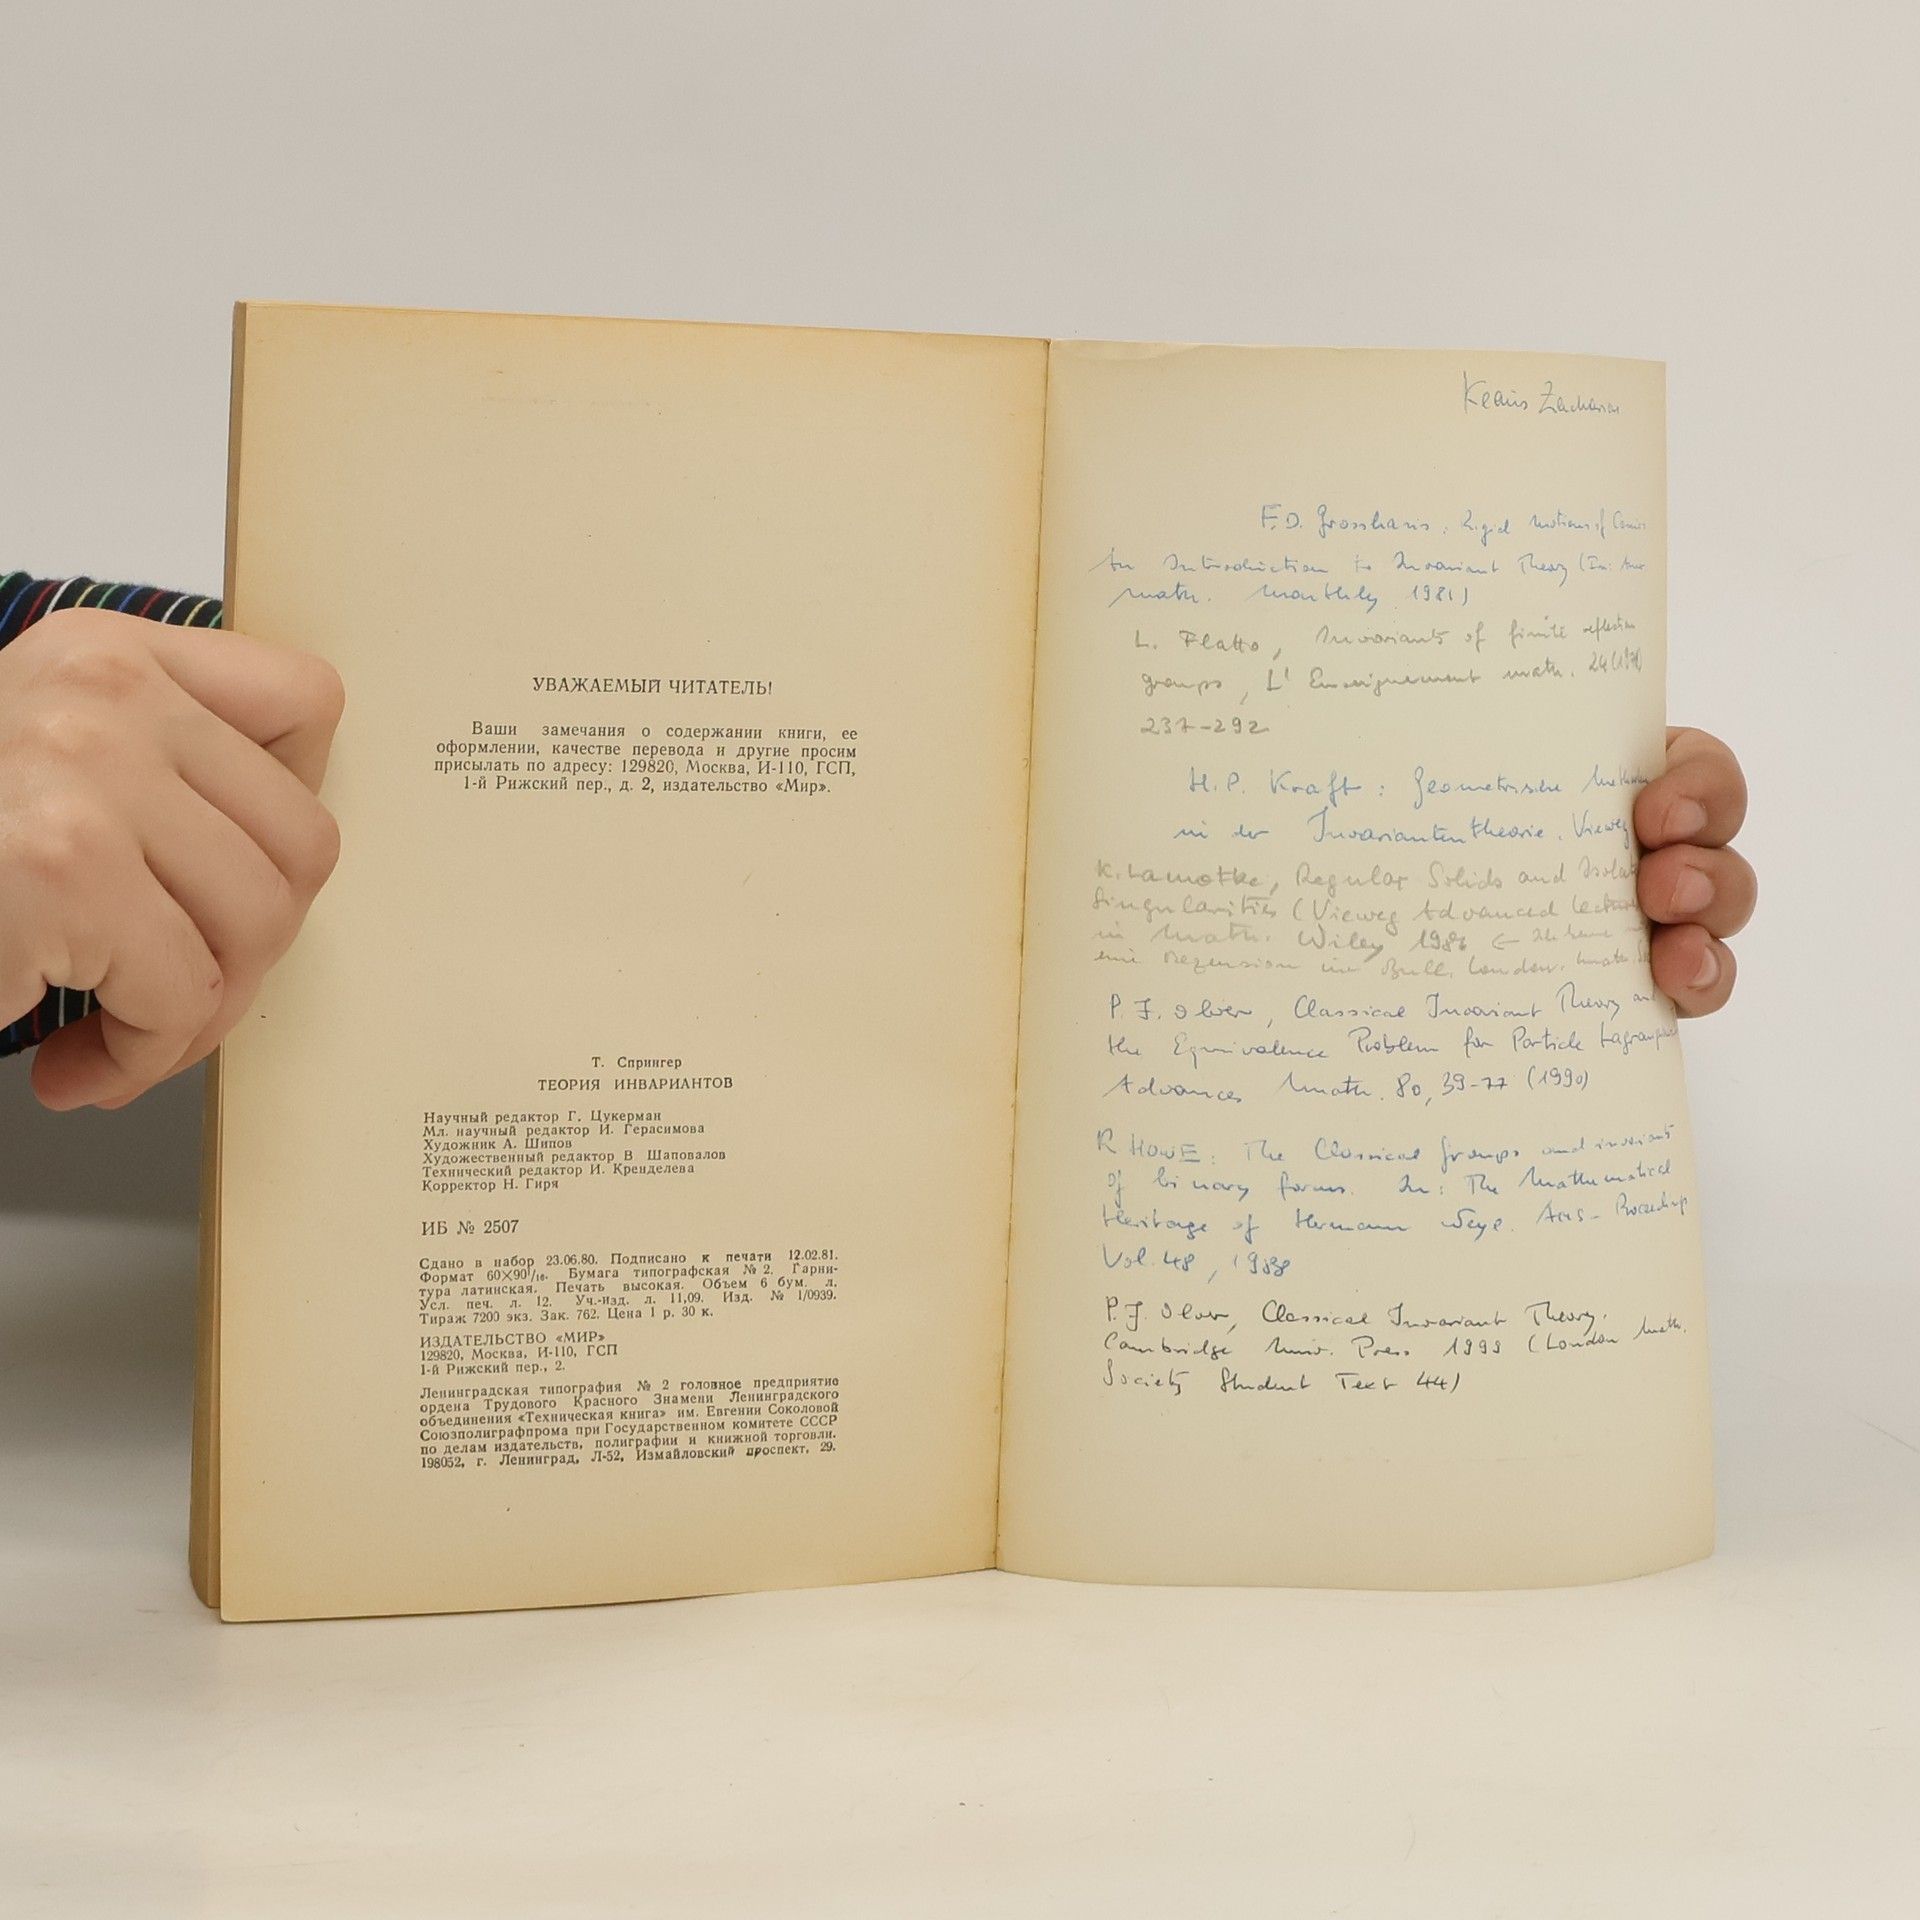 УВАЖАЕМЫЙ ЧИТАТЕЛЬ!
Ваши замечания о содержании книги, ее
оформлении, качестве перевода и другие просим
присылать по адресу: 129820, Москва, И-110, ГСП,
1-й Рижский пер., д. 2, издательство «Мир».
Т. Спрингер
ТЕОРИЯ ИНВАРИАНТОВ
Научный редактор Г. Цукерман
Мл. научный редактор И. Герасимова
Художник А. Шипов
Художественный редактор В Шаповалов
Технический редактор И. Кренделева
Корректор Н. Гиря
ИБ № 2507
Сдано в набор 23.06.80. Подписано к печати 12.02.81.
Формат 60×90¹/₁₆. Бумага типографская № 2. Гарни-
тура латинская. Печать высокая. Объем 6 бум. л.
Усл. печ. л. 12. Уч.-изд. л. 11,09. Изд. № 1/0939.
Тираж 7200 экз. Зак. 762. Цена 1 р. 30 к.
ИЗДАТЕЛЬСТВО «МИР»
129820, Москва, И-110, ГСП
1-й Рижский пер., 2.
Ленинградская типография № 2 головное предприятие
ордена Трудового Красного Знамени Ленинградского
объединения «Техническая книга» им. Евгении Соколовой
Союзполиграфпрома при Государственном комитете СССР
по делам издательств, полиграфии и книжной торговли.
198052, г. Ленинград, Л-52, Измайловский проспект, 29.
Klaus Zacharias
F.D. Grosshans: Rigid Motions of Conics
An Introduction to Invariant Theory (In: Amer
Math. Monthly 1981)
L. Flatto, Invariants of finite reflection
groups, L'Enseignement math. 24
237-292
H.P. Kraft: Geometrische
in der Invariantentheorie. Vieweg
K. Lamotke, Regular Solids and Isolated
Singularities (Vieweg Advanced Lectures
in Math. Wiley 1986 ←
eine Rezension in Bull. London. Math.
P. J. Olver, Classical Invariant Theory and
the Equivalence Problem for Particle Lagrangians
Advances Math. 80, 39-77 (1990)
R HOWE: The Classical groups and invariants
of binary forms. In: The Mathematical
Heritage of Hermann Weyl. AMS-Proceedings
Vol. 48, 1988
P. J. Olver, Classical Invariant Theory.
Cambridge Univ. Press 1999 (London Math.
Society Student Text 44)